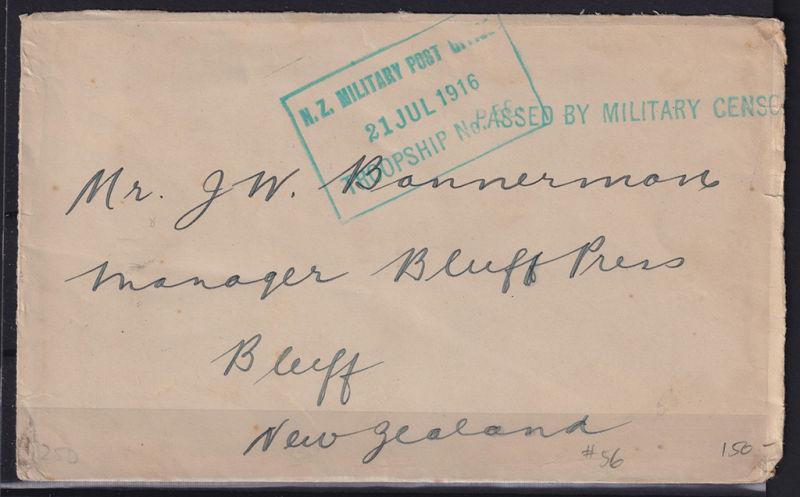 N. Z. MILITARY POST OFFICE
21 JUL 1916
TROOPSHIP No.
PASSED BY MILITARY CENSO
Mr. J W. Bannerman
Manager Bluff Press
Bluff
New Zealand
#56
150-
250